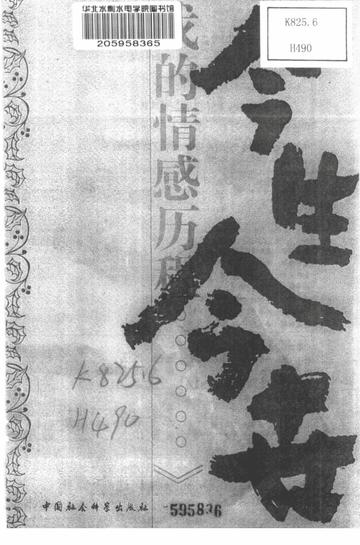 华北水利水电学院图书馆
205958365
K825.6
H490
今生今世
我的情感历程
K825.6
H490
中国社会科学出版社
595836